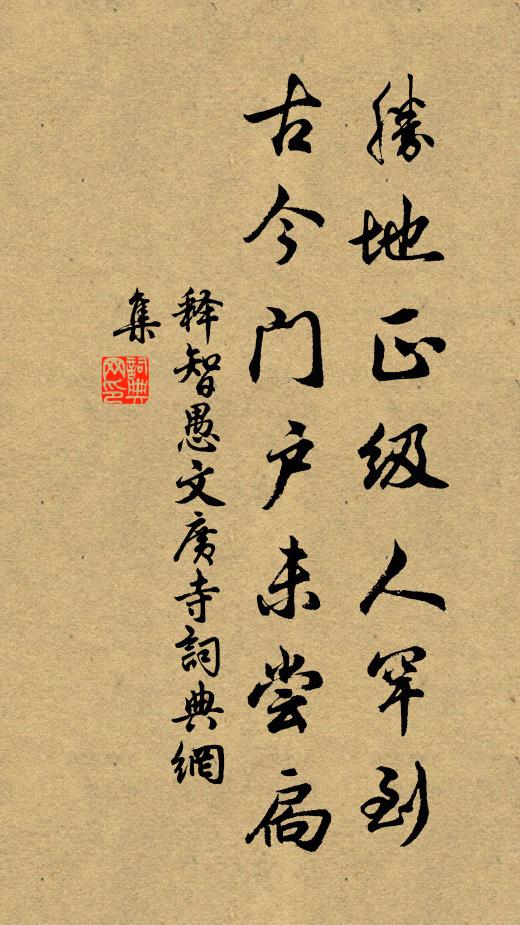 勝地正级人罕到
古今门户未尝扃
释智愚文廣寺詞典網
集
詞典网印